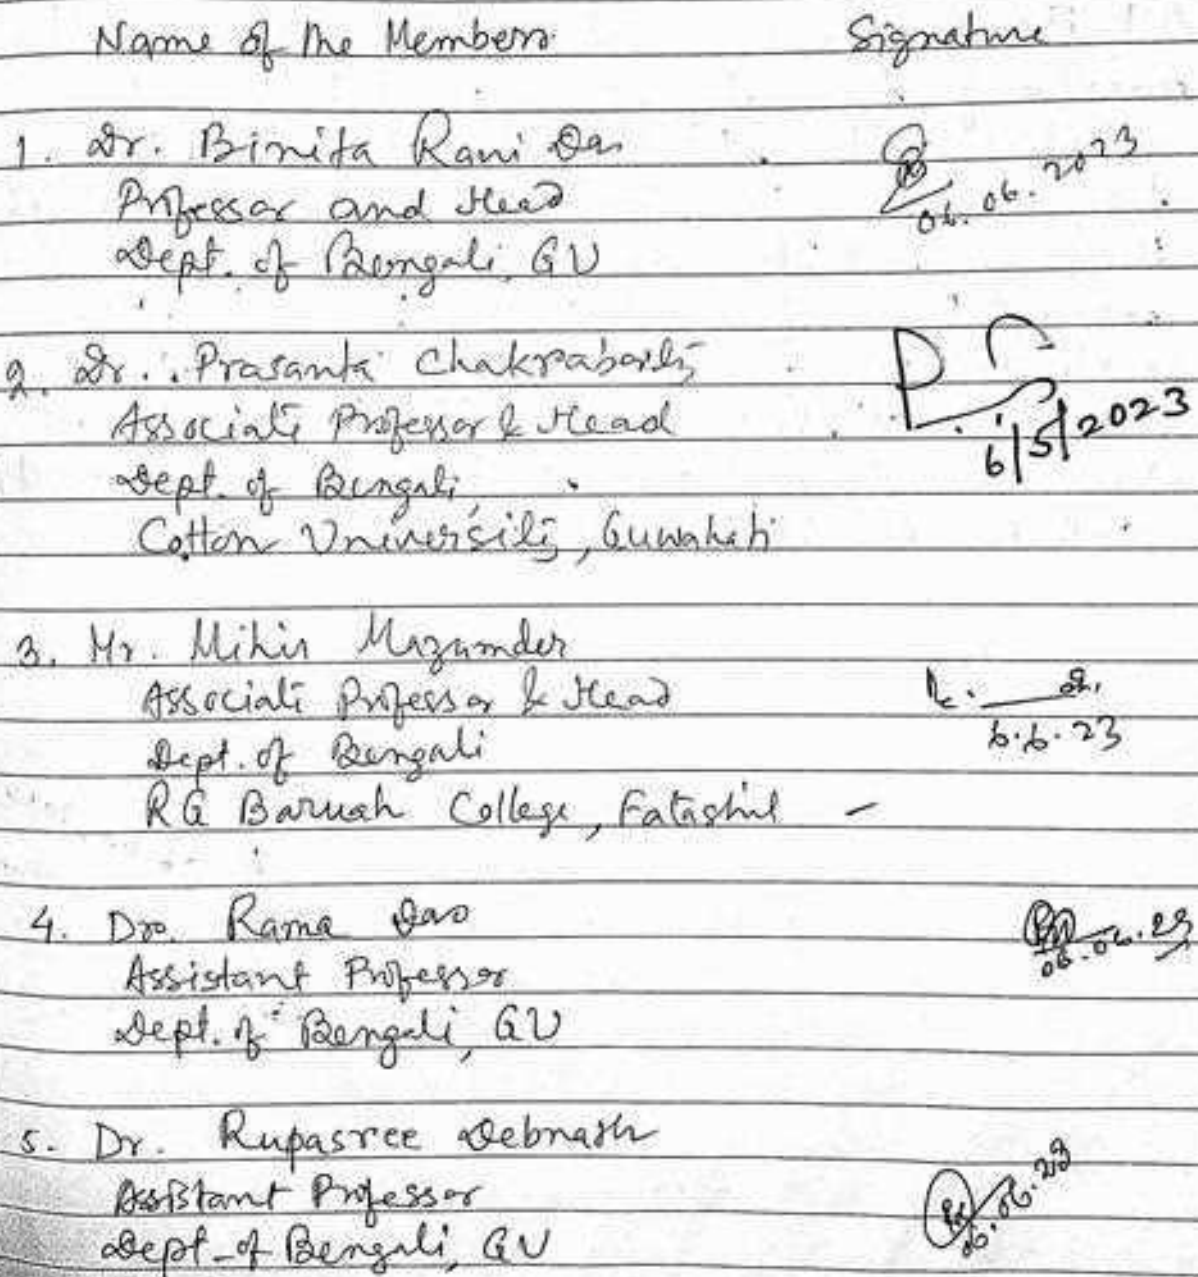 Name of the Members Signature
1. Dr. Binita Rani Das
Professor and Head 06.06.2023
Dept. of Bengali, GU
2. Dr. Prasanta Chakrabarty
Associate Professor & Head 6/5/2023
Dept. of Bengali,
Cotton University, Guwahati
3. Mr. Mihir Mazumder
Associate Professor & Head
Dept. of Bengali 6.6.23
RG Baruah College, Fatashil -
4. Dr. Rama Das
Assistant Professor 06.06.23
Dept. of Bengali, GU
5. Dr. Rupasree Debnath
Assistant Professor 06.06.23
Dept. of Bengali, GU